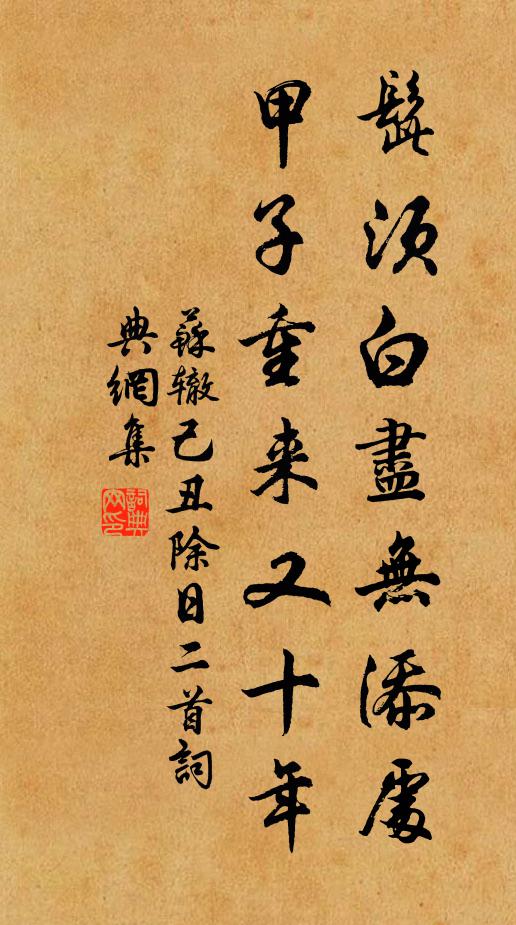 髭須白盡無添處
甲子重来又十年
蘇辙己丑除日二首詞
典網集
詞典网印